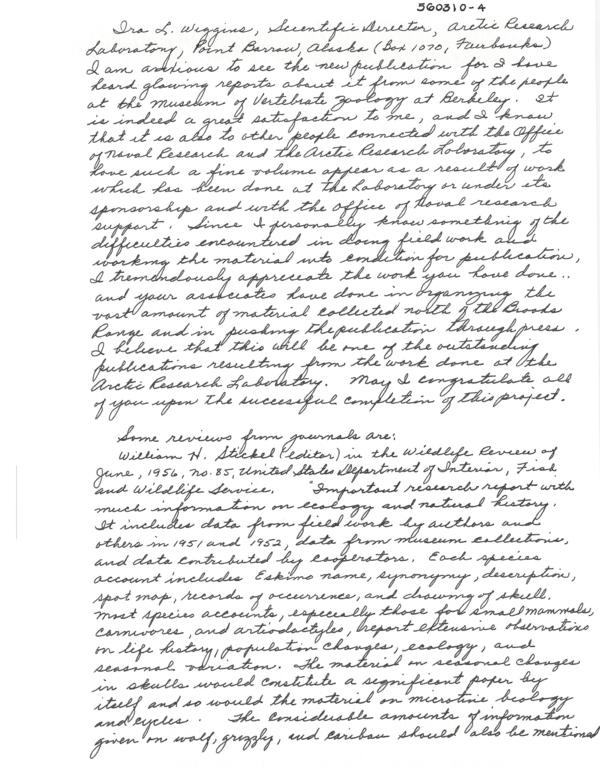 560310-4
Ira L. Wiggins, Scientific Director, Arctic Research
Laboratory, Point Barrow, Alaska (Box 1070, Fairbanks)
I am anxious to see the new publication for I have
heard glowing reports about it from some of the people
at the Museum of Vertebrate Zoology at Berkeley. It
is indeed a great satisfaction to me, and I know
that it is also to other people connected with the Office
of Naval Research and the Arctic Research Laboratory, to
have such a fine volume appear as a result of work
which has been done at the Laboratory or under its
sponsorship and with the office of Naval research
support. Since I personally know something of the
difficulties encountered in doing field work and
working the material into condition for publication,
I tremendously appreciate the work you have done..
and your associates have done in organizing the
vast amount of material collected north of the Brooks
Range and in pushing the publication through press.
I believe that this will be one of the outstanding
publications resulting from the work done at the
Arctic Research Laboratory. May I congratulate all
of you upon the successful completion of this project.
Some reviews from journals are:
William H. Stickel (editor) in the Wildlife Review of
June, 1956, no. 85, United States Department of Interior, Fish
and Wildlife Service. "Important research report with
much information on ecology and natural history.
It includes data from field work by authors and
others in 1951 and 1952, data from museum collections,
and data contributed by cooperators. Each species
account includes Eskimo name, synonymy, description,
spot map, records of occurrence, and drawing of skull.
Most species accounts, especially those for small mammals,
carnivores, and artiodactyles, report extensive observations
on life history, population changes, ecology, and
seasonal variation. The material on seasonal changes
in skulls would constitute a significant paper by
itself and so would the material on microtine biology
and cycles. The considerable amounts of information
given on wolf, grizzly, and caribou should also be mentioned